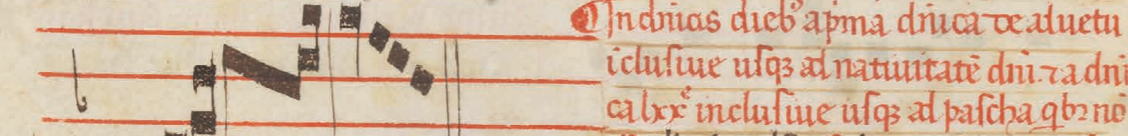 In dnicis dieb' a pma dnica de aduetu
iclusiue usqȝ ad natiuitatē dni. ⁊ a dni
ca lxxͤ inclusiue usqȝ ad pascha qbꝫ nō